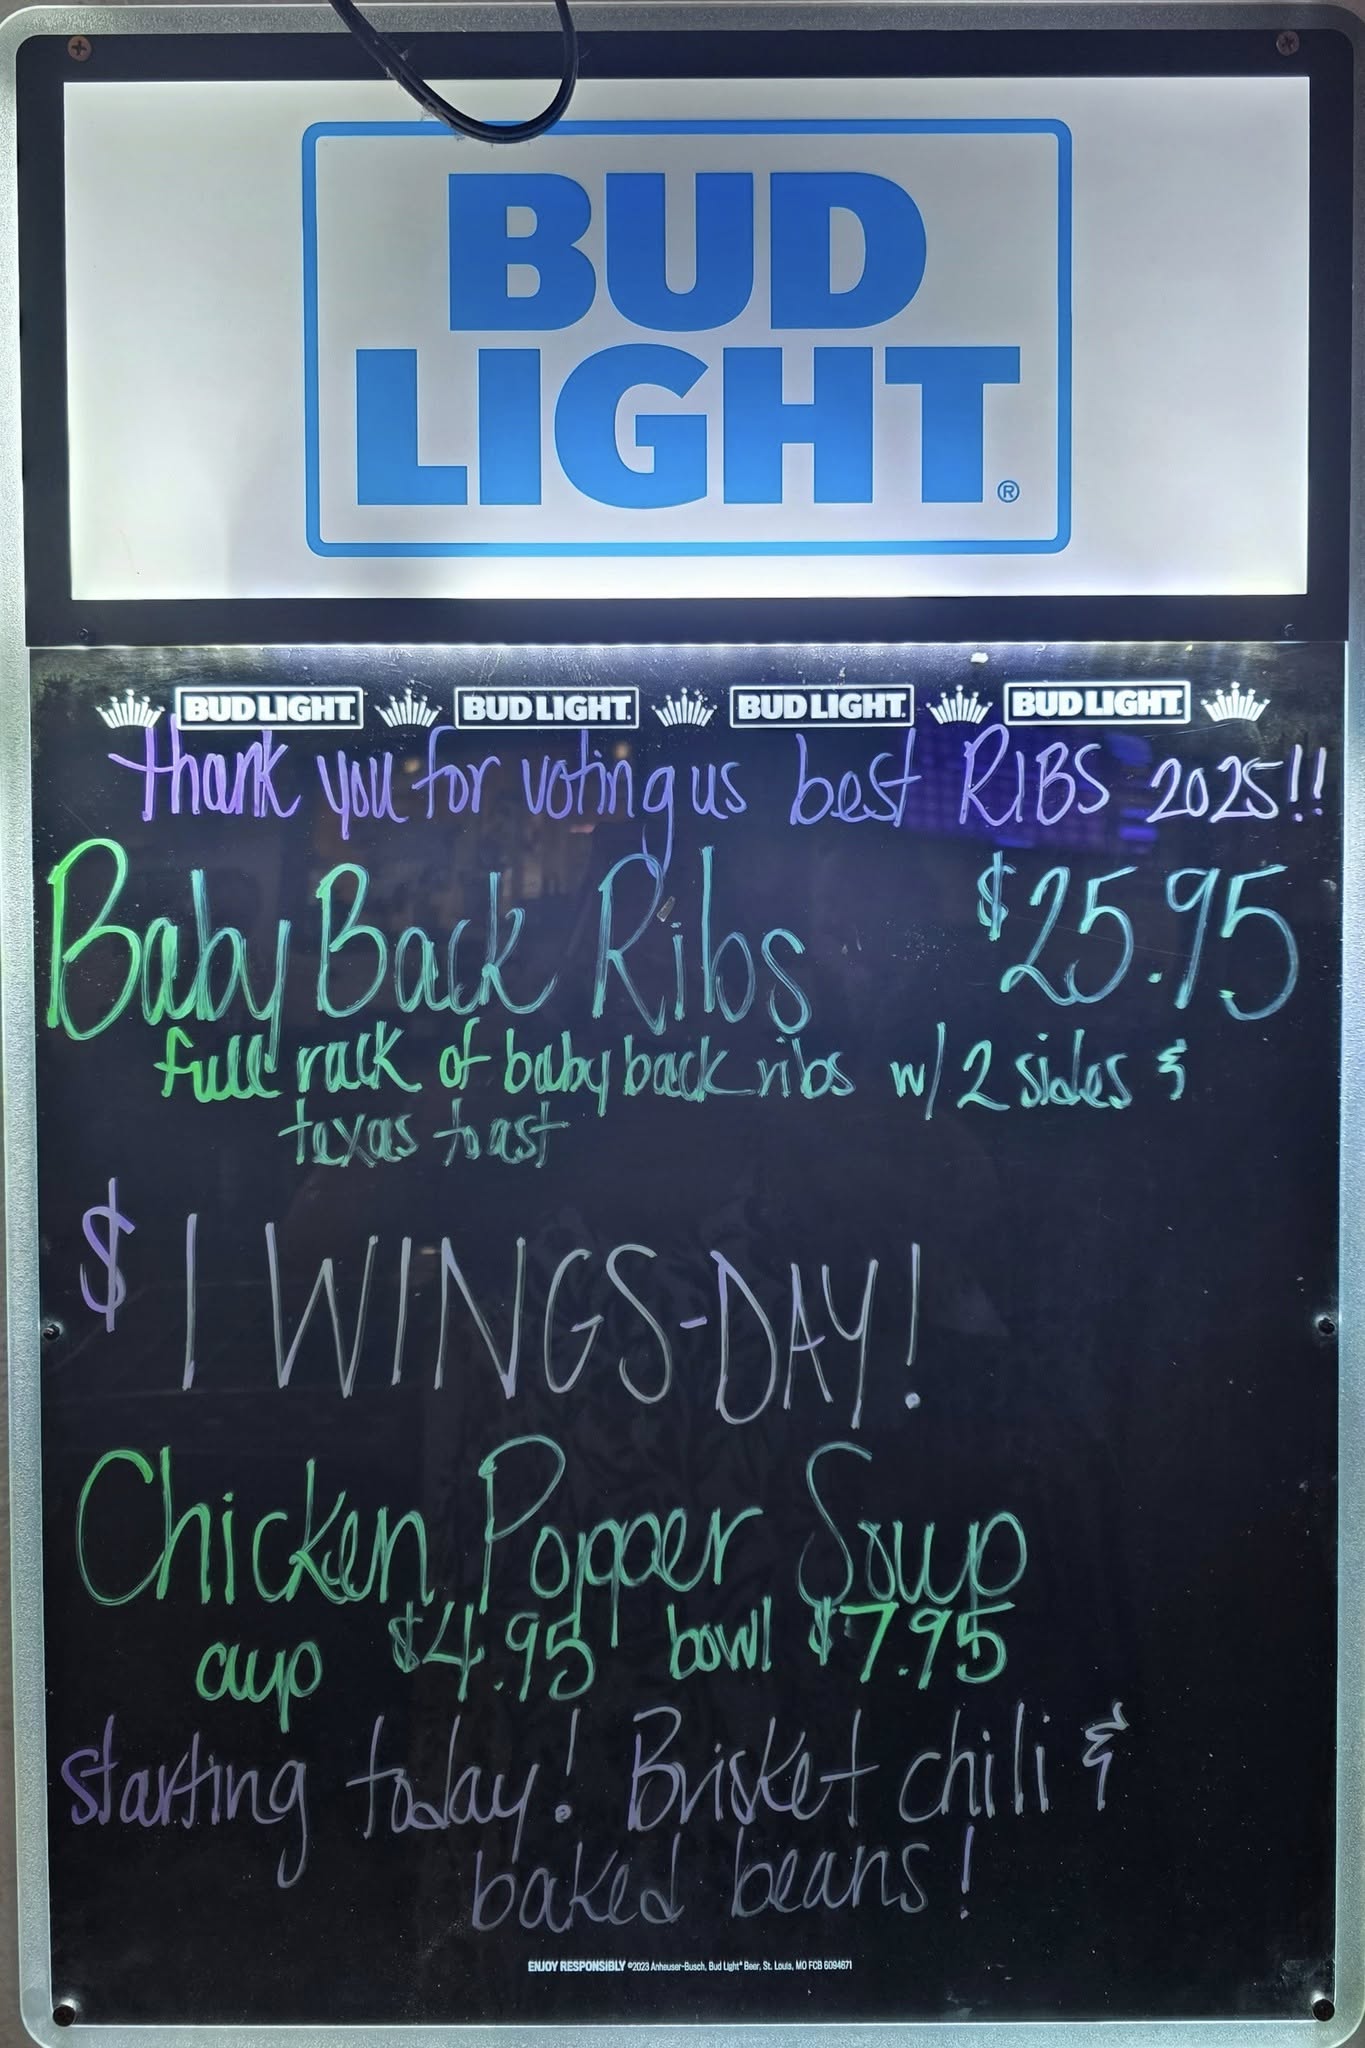 BUD
LIGHT®
BUD LIGHT. BUD LIGHT. BUD LIGHT. BUD LIGHT.
thank you for voting us best RIBS 2025!!
Baby Back Ribs $25.95
full rack of baby back ribs w/ 2 sides &
texas toast
$1 WINGS-DAY!
Chicken Popper Soup
cup $4.95 bowl $7.95
starting today! Brisket chili &
baked beans!
ENJOY RESPONSIBLY ©2023 Anheuser-Busch, Bud Light® Beer, St. Louis, MO FCB 6094671